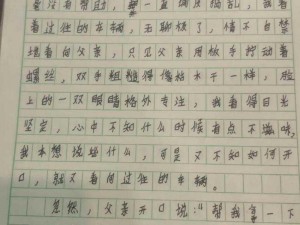 着过往的车辆,无聊烦了,情不自禁
地看向父亲,只见父亲用扳手拧动着
螺丝,双手粗糙得像格水干一样,脸
上的一双眼睛格外专注,我看得目光
坚定,心中不知什么时候有点不滋味,
我本想说些什么,可是又不知如何开
口,就又看向过往的车辆。
忽然,父亲开口说:“帮我拿一下